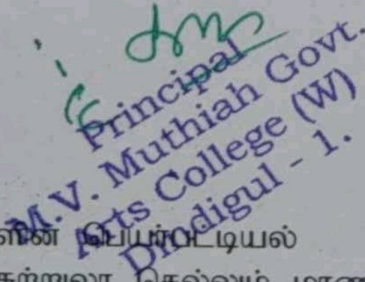 Principal
M.V. Muthiah Govt.
Arts College (W)
Dindigul - 1.
பெயர்பட்டியல்
செல்லும்